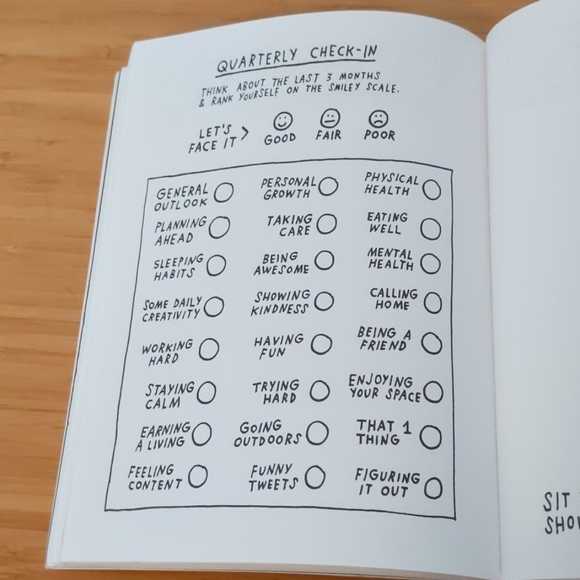 QUARTERLY CHECK-IN
THINK ABOUT THE LAST 3 MONTHS
& RANK YOURSELF ON THE SMILEY SCALE.
LET'S
FACE IT >
GOOD
FAIR
POOR
GENERAL
OUTLOOK
PERSONAL
GROWTH
PHYSICAL
HEALTH
PLANNING
AHEAD
TAKING
CARE
EATING
WELL
SLEEPING
HABITS
BEING
AWESOME
MENTAL
HEALTH
SOME DAILY
CREATIVITY
SHOWING
KINDNESS
CALLING
HOME
WORKING
HARD
HAVING
FUN
BEING A
FRIEND
STAYING
CALM
TRYING
HARD
ENJOYING
YOUR SPACE
EARNING
A LIVING
GOING
OUTDOORS
THAT 1
THING
FEELING
CONTENT
FUNNY
TWEETS
FIGURING
IT OUT
SIT